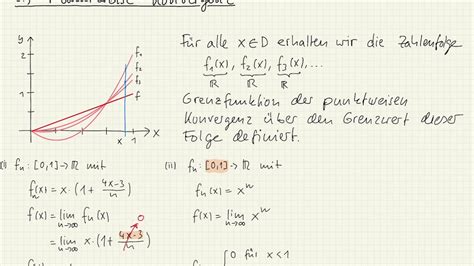 Punktweise Konvergenz
y
2
1
x 1
x
f₁
f₂
f₃
f
Für alle x∈D erhalten wir die Zahlenfolge
f₁(x), f₂(x), f₃(x), ...
ℝ ℝ ℝ
Grenzfunktion der punktweisen
Konvergenz über den Grenzwert dieser
Folge definiert.
(i) fₙ: [0,1] → ℝ mit
fₙ(x) = x · (1 + (4x-3)/n)
f(x) = lim n→∞ fₙ(x)
0
= lim n→∞ x · (1 + (4x-3)/n)
(ii) fₙ: [0,1] → ℝ mit
fₙ(x) = xⁿ
f(x) = lim n→∞ xⁿ
0 für x < 1